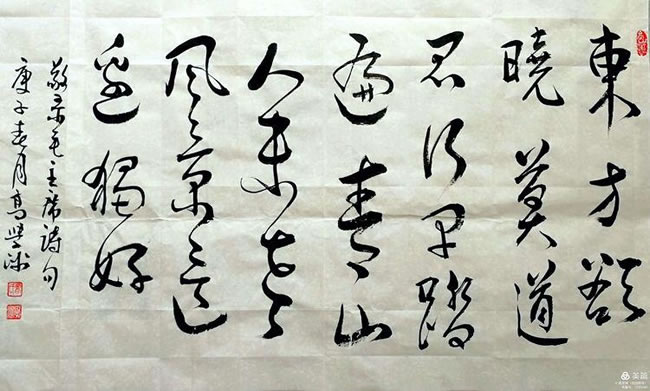 東方欲
曉莫道
君行早踏
遍青山
人未老
風景這
邊獨好
敬录毛主席詩句
庚子春月高學